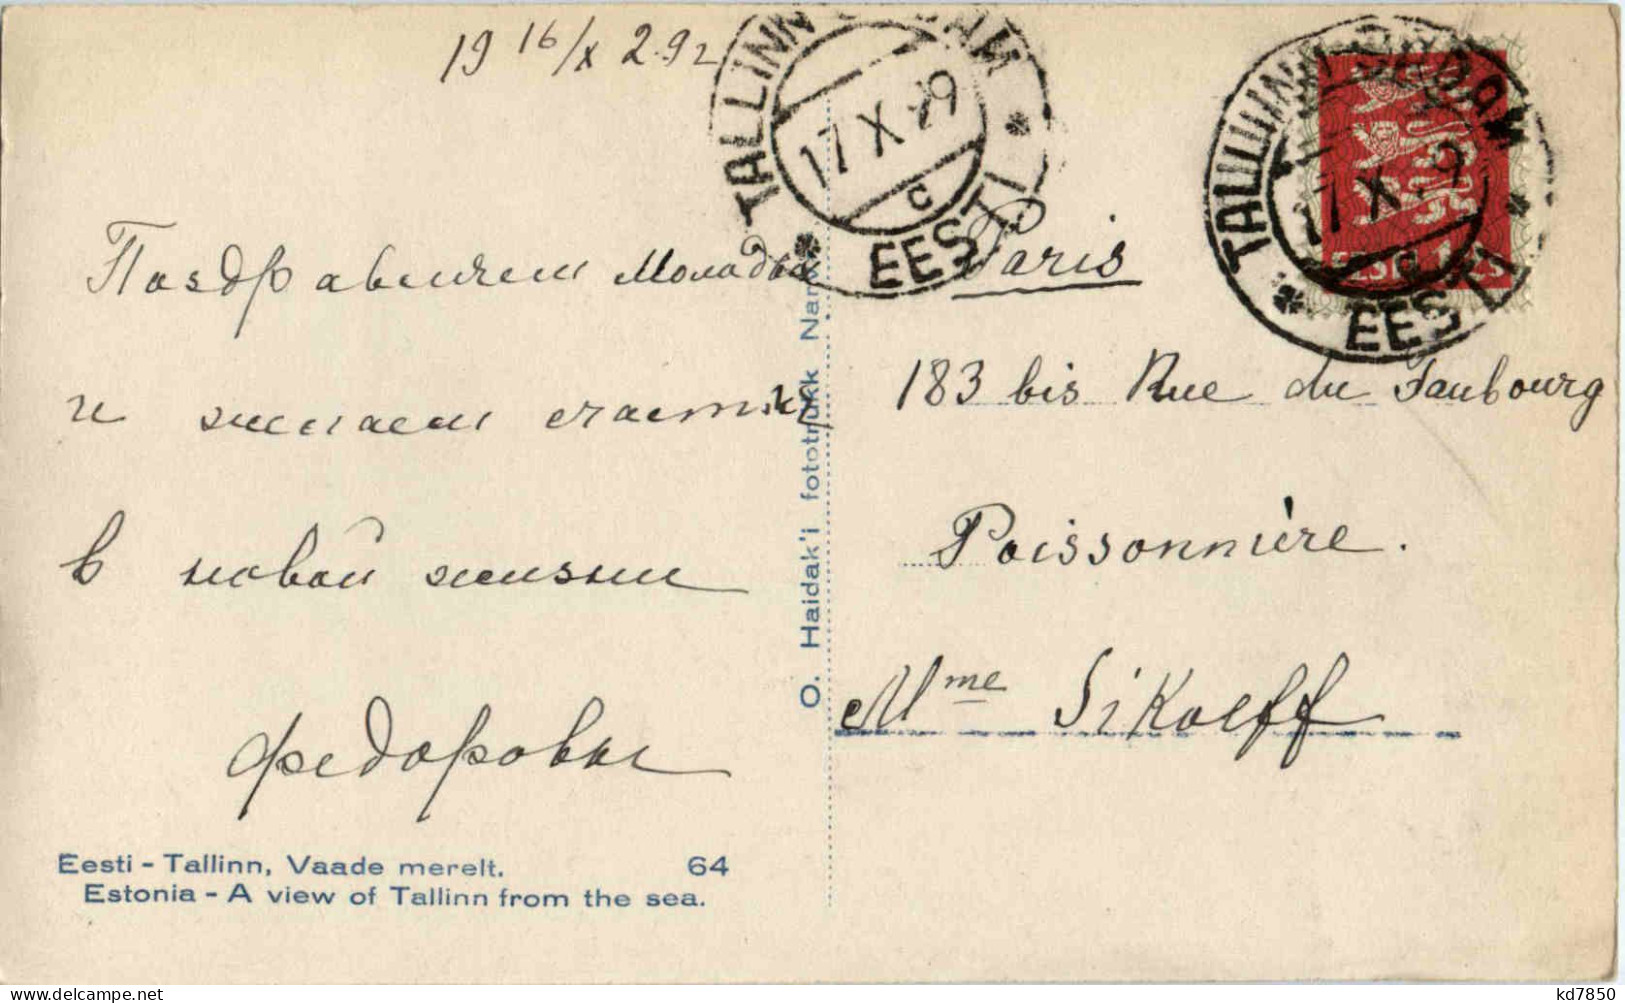 19 16/X 29 г
TALLINN SADAM
17 X 29
C
EESTI
TALLINN SADAM
17 X 29
C
EESTI
EESTI
Поздравляем Молодых
и желаем счастья
в новой жизни
Федоровы
Eesti - Tallinn, Vaade merelt. 64
Estonia - A view of Tallinn from the sea.
O. Haidak'i fototrükk
Paris
183 bis Rue du Faubourg
Poissonnière.
Mme Sikoeff
kd7850